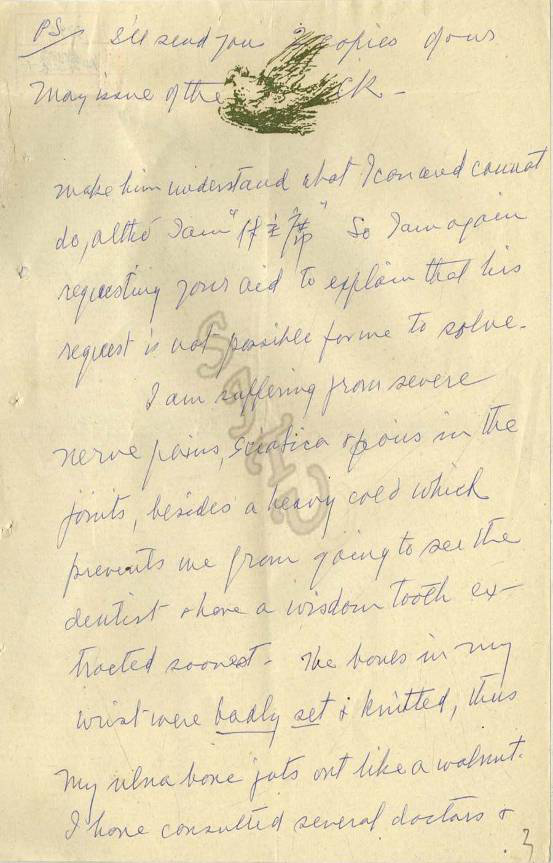 PS/ I'll send you 2 copies of our
May issue of the ck -
make him understand what I can and cannot
do, altho' I am " " So I am again
requesting your aid to explain that his
request is not possible for me to solve.
I am suffering from severe
nerve pains, sciatica & pains in the
joints, besides a heavy cold which
prevents me from going to see the
dentist & have a wisdom tooth ex-
tracted soonest - The bones in my
wrist were badly set & knitted, thus
my ulna bone juts out like a walnut.
I have consulted several doctors &
3